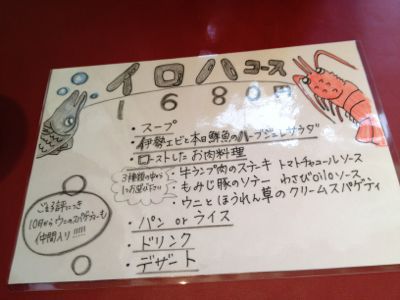 イロハコース
1680円
・スープ
・伊勢エビと本日鮮魚のハーブジュレサラダ
・ローストしたお肉料理
3種類の中から
1つお選び下さい
・牛ランプ肉のステーキ トマトチャツネソース
・もみじ豚のソテー わさびoiloソース
・ウニとほうれん草のクリームスパゲティ
・パン or ライス
・ドリンク
・デザート
ご好評につき
10月からウニのスパゲティーも
仲間入り!!!!!